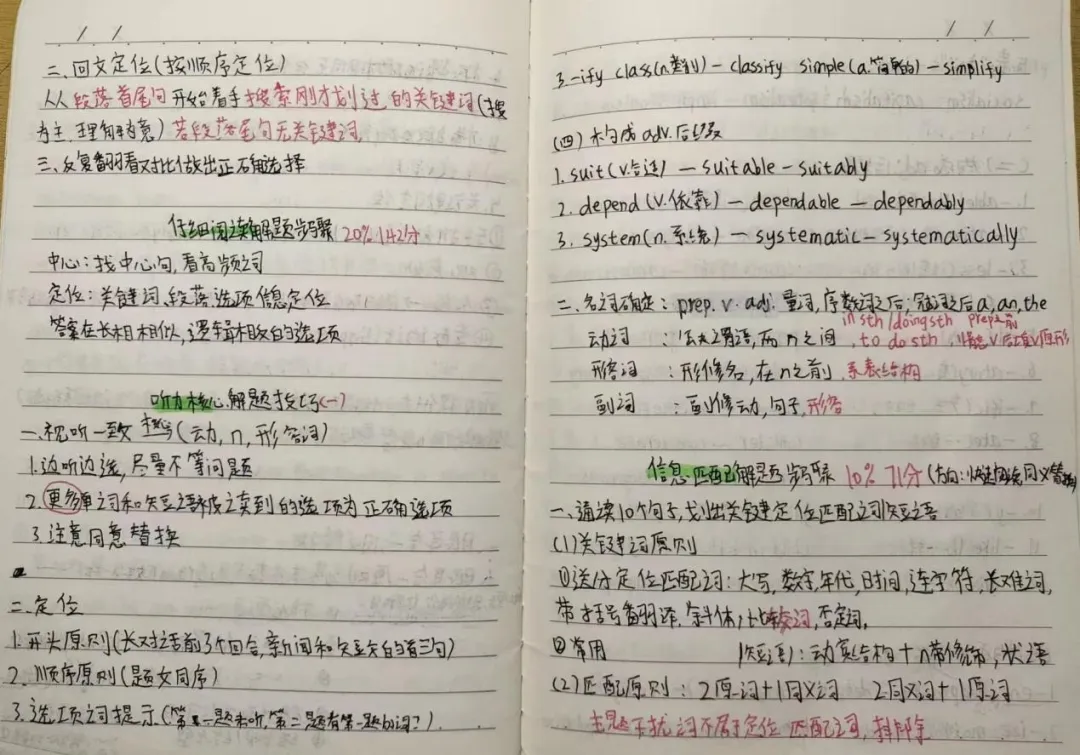 二、回文定位(按顺序定位)
从段落首尾句开始着手搜索刚才划过的关键词(搜
为主,理解为竟)若段落尾句无关键词
三、反复翻看对比做出正确选择
仔细阅读解题步骤 20% 142分
中心:找中心句,看高频词
定位:关键词、段落选项信息定位
答案在长相相似,逻辑相反的选项
听力核心解题技巧(一)
一、视听一致 (动,n,形容词)
1.边听边选,尽量不等问题
2.更多单词和短语被读到的选项为正确选项
3.注意同意替换
二、定位
1.开头原则(长对话前3个回合,新闻和短文的首三句)
2.顺序原则(题文同序)
3.选项词提示(第一题未听,第二题有第一题的词?)
3.-ify class(n.类别)-classify simple(a.简单的)-simplify
(四)构成adv.后缀
1.suit(v.合适)-suitable-suitably
2.depend(v.依靠)-dependable-dependably
3.system(n.系统)-systematic-systematically
二、名词确定:prep. v. adj. 量词,序数词之后;冠词之后a,an,the
in sth/doing sth prep之前
动词:公式谓语,两n之间,to do sth,情态v后填v原形
形容词:形修名,在n之前,系表结构
副词:副修动,句子,形容
信息匹配解题步骤 10% 71分(方向:快速阅读同义替换)
一、通读10个句子,划出关键定位匹配词短语
(1)关键词原则
①送分定位匹配词:大写,数字,年代,时间,连字符,长难词,
带括号翻译,斜体,比较词,否定词,
②常用 (短语):动宾结构+n带修饰,状语
(2)匹配原则:2原词+1同义词 2同义词+1原词
主题干扰词不属于定位匹配词,排除